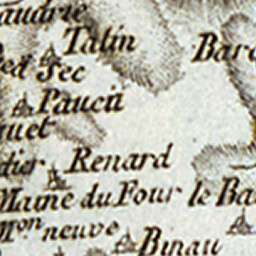 audrie
Talin
Baro
Sec
Paucü
quet
dier
Renard
Maine du Four
le Ba
Mon neuve
Binau